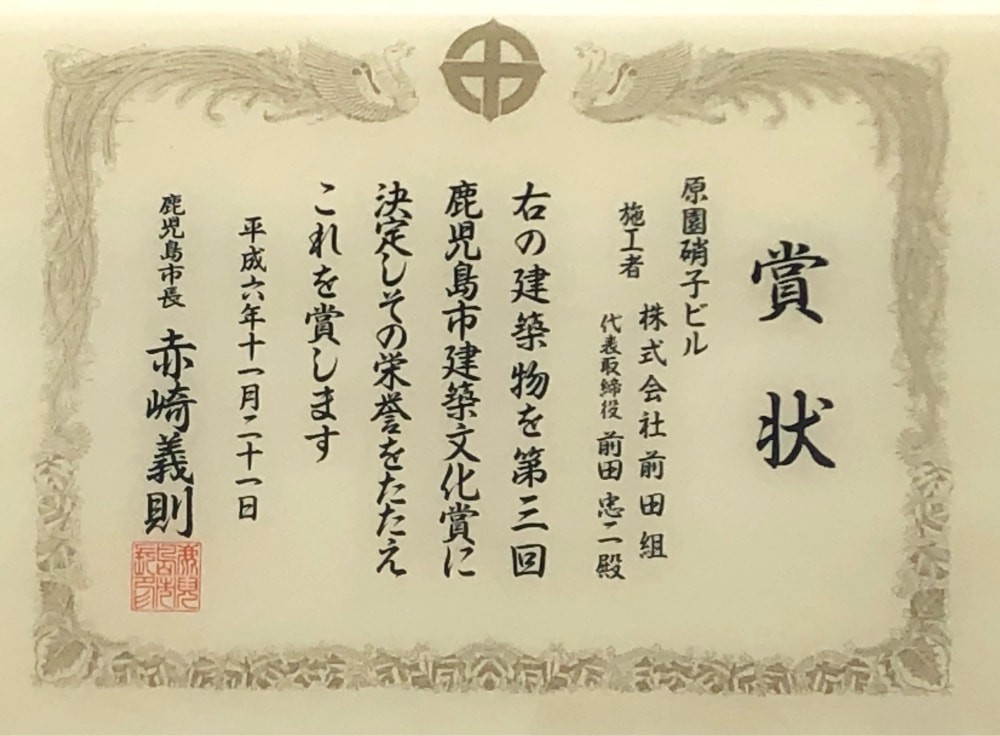 賞状
原園硝子ビル
施工者
株式会社前田組
代表取締役 前田忠二殿
右の建築物を第三回
鹿児島市建築文化賞に
決定しその栄誉をたたえ
これを賞します
平成六年十一月二十一日
鹿児島市長 赤崎義則